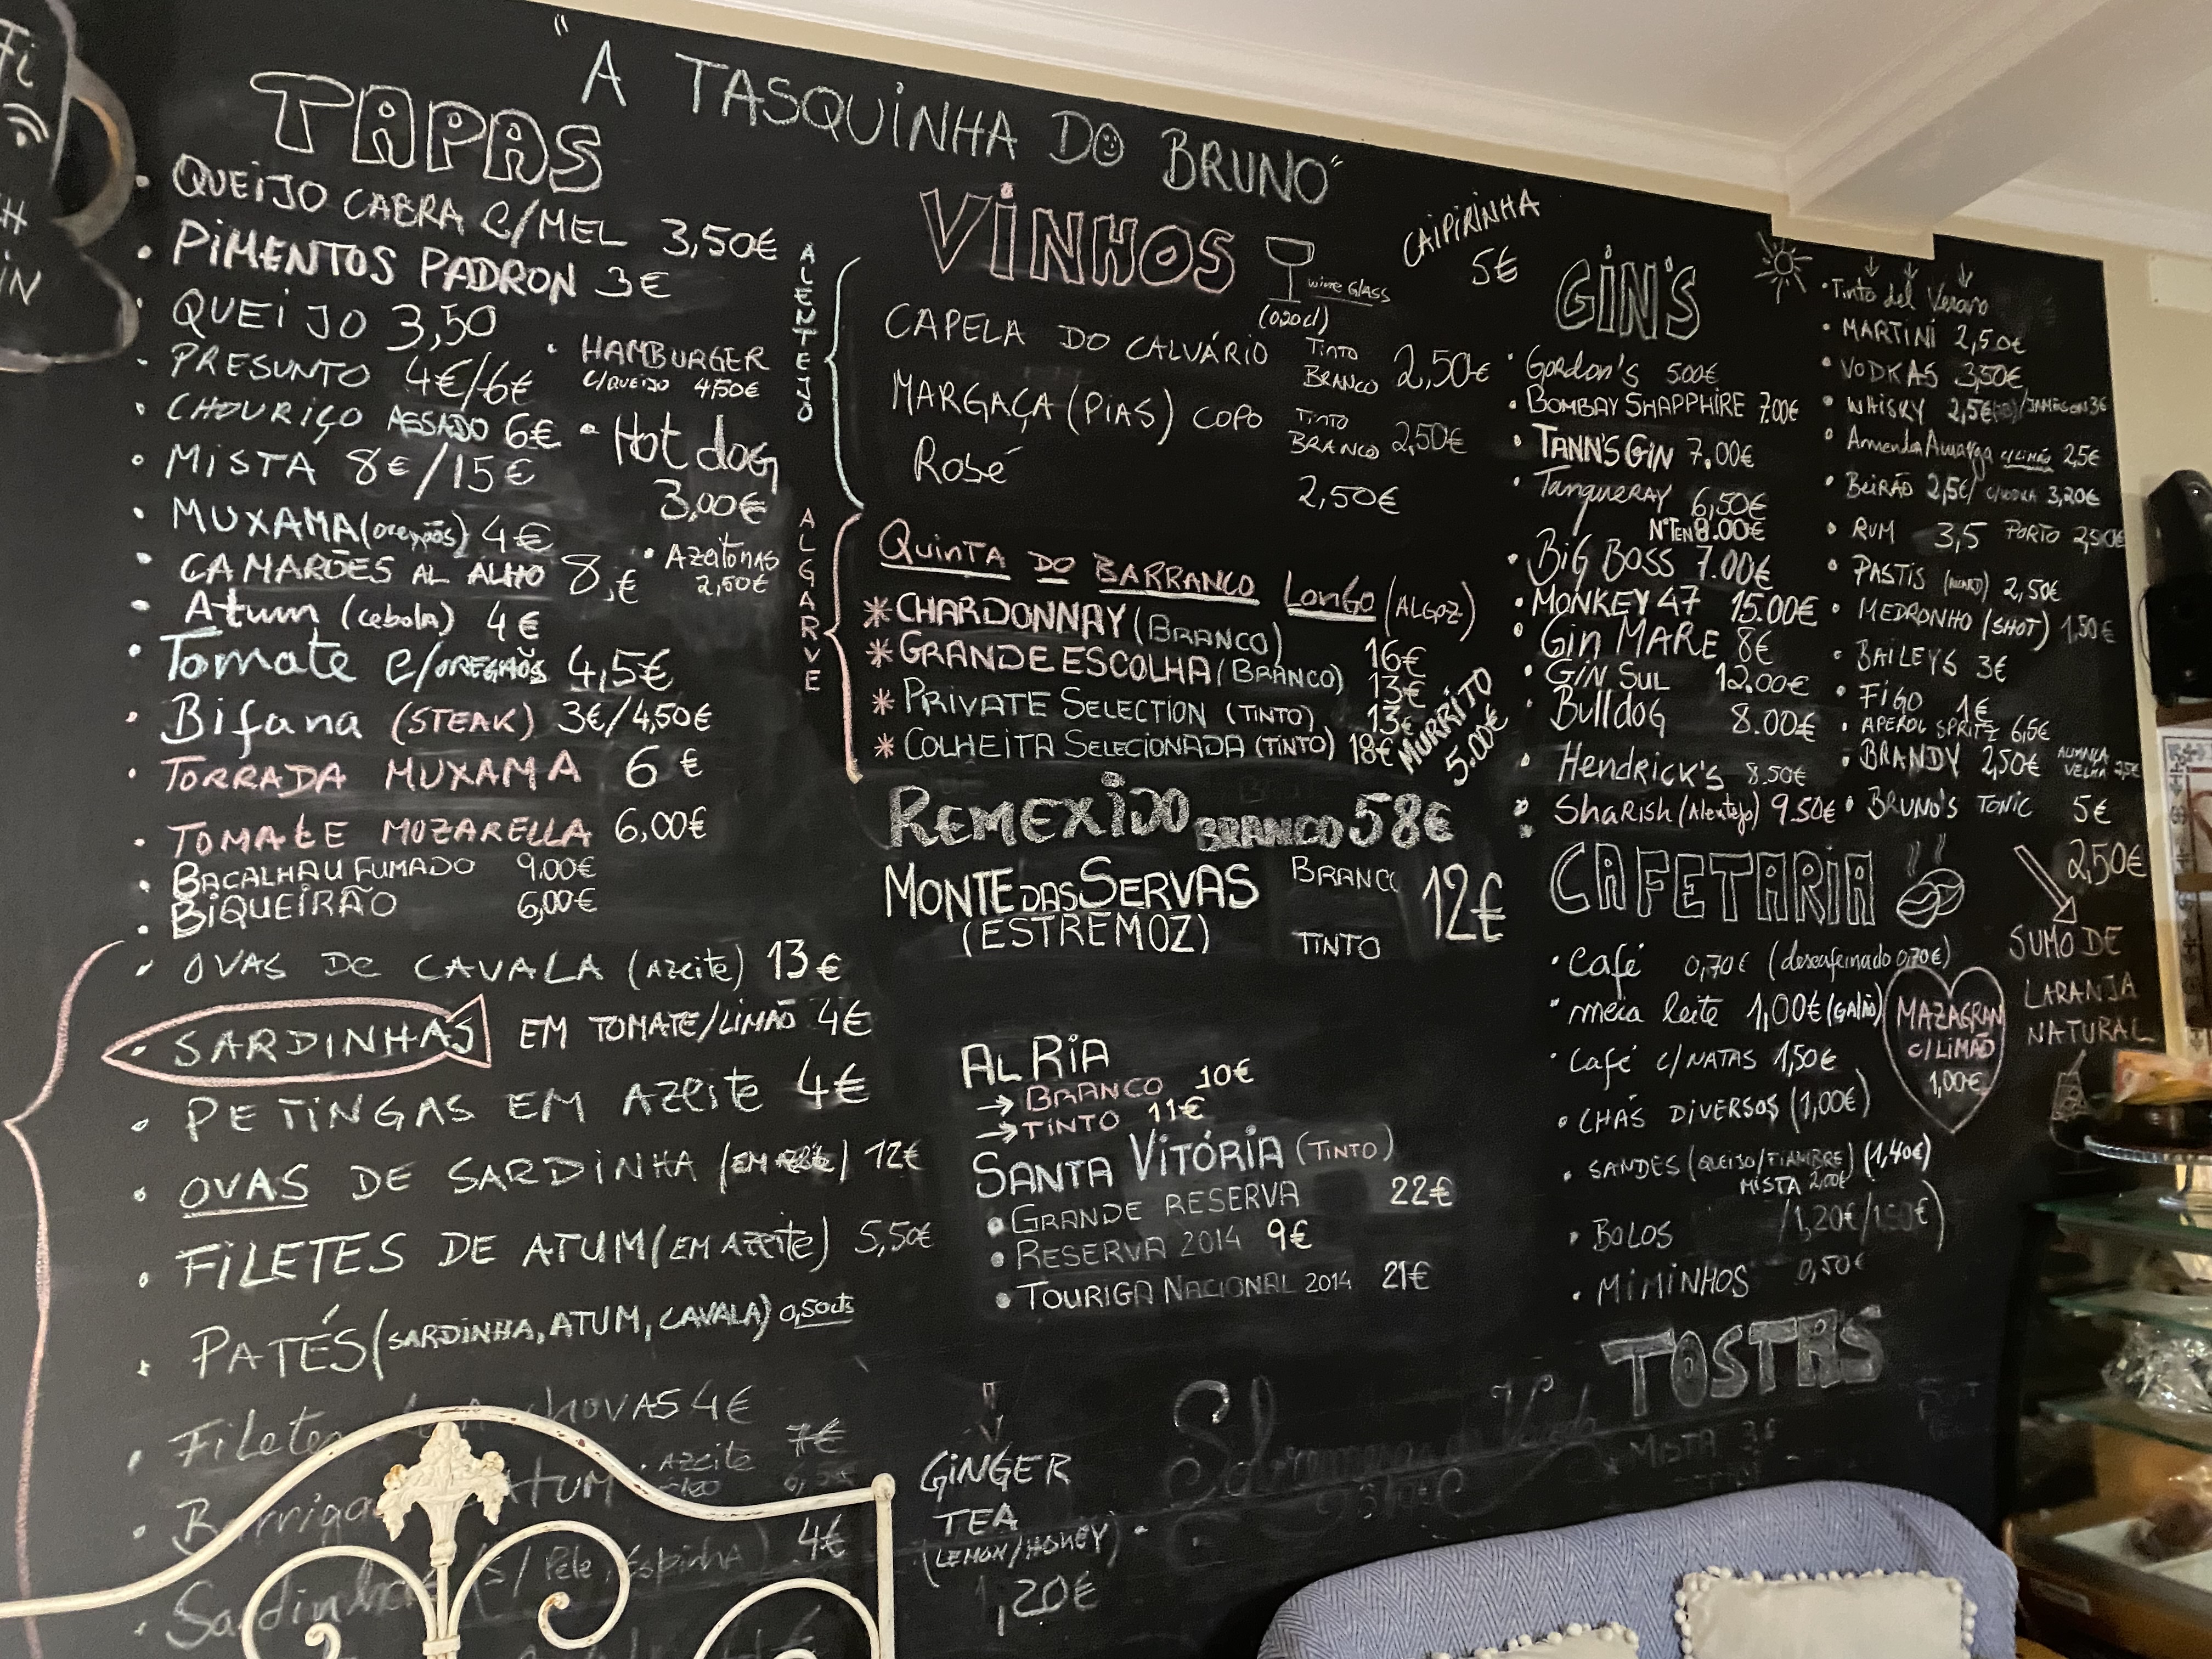 "A TASQUINHA DO BRUNO"
TAPAS
• QUEIJO CABRA C/MEL 3,50€
• PIMENTOS PADRON 3€
• QUEIJO 3,50
• PRESUNTO 4€/6€
• CHOURIÇO ASSADO 6€
• MISTA 8€/15€
• HAMBURGER
C/QUEIJO 4,50€
• Hot dog
3,00€
• MUXAMA (oregãos) 4€
• CAMARÕES AL ALHO 8,€
• AZEITONAS
2,50€
• Atum (cebola) 4€
• Tomate C/OREGÃOS 4,5€
• Bifana (STEAK) 3€/4,50€
• TORRADA MUXAMA 6€
• TOMATE MOZARELLA 6,00€
• BACALHAU FUMADO 9.00€
• BIQUEIRÃO 6,00€
• OVAS DE CAVALA (AZEITE) 13€
• SARDINHAS EM TOMATE/LIMÃO 4€
• PETINGAS EM AZEITE 4€
• OVAS DE SARDINHA (EM AZEITE) 12€
• FILETES DE ATUM (EM AZEITE) 5,50€
• PATÉS (SARDINHA, ATUM, CAVALA) 0,50cts
• Filetes CHOVAS 4€
• Barriga ATUM • AZEITE 7€
• Sardinha (S/ Pele, Espinha) 4€
VINHOS
WINE GLASS
(020cl)
ALENTEJO
CAPELA DO CALVÁRIO TINTO
BRANCO 2,50€
MARGAÇA (PIAS) COPO TINTO
BRANCO 2,50€
ROSÉ 2,50€
ALGARVE
QUINTA DO BARRANCO LONGO (ALGOZ)
* CHARDONNAY (BRANCO) 16€
* GRANDE ESCOLHA (BRANCO) 13€
* PRIVATE SELECTION (TINTO) 13€
* COLHEITA SELECIONADA (TINTO) 18€
REMEXIDO BRANCO 58€
MONTE DAS SERVAS BRANCO 12€
(ESTREMOZ) TINTO
AL RIA
→ BRANCO 10€
→ TINTO 11€
SANTA VITÓRIA (TINTO)
• GRANDE RESERVA 22€
• RESERVA 2014 9€
• TOURIGA NACIONAL 2014 21€
GINGER
TEA
(LEMON/HONEY)
1,20€
CAIPIRINHA
5€
MURRITO
5.00€
GIN'S
• Gordon's 5.00€
• BOMBAY SHAPPHIRE 7.00€
• TANN'S GIN 7.00€
• Tanqueray 6,50€
Nº TEN 8.00€
• BIG BOSS 7.00€
• MONKEY 47 15.00€
• Gin MARE 8€
• GIN SUL 12.00€
• Bulldog 8.00€
• Hendrick's 8.50€
• Sharish (Alentejo) 9.50€
• Tinto del Verano
• MARTINI 2,50€
• VODKAS 3,50€
• WHISKY 2,5€ /JAMESON 3€
• Amendoa Amarga c/LIMÃO 2,5€
• BEIRÃO 2,5€/ C/VODKA 3,20€
• RUM 3,5 PORTO 2,50€
• PASTIS (RICARD) 2,50€
• MEDRONHO (SHOT) 1,50€
• BAILEYS 3€
• FIGO 1€
• APEROL SPRITZ 6,5€
• BRANDY 2,50€
• BRUNO'S TONIC 5€
2,50€
SUMO DE
LARANJA
NATURAL
CAFETARIA
• Café 0,70€ (descafeinado 0,70€)
• meia leite 1,00€ (GALÃO)
• Café C/NATAS 1,50€
• CHÁS DIVERSOS (1,00€)
• SANDES (QUEIJO/FIAMBRE) (1,40€)
MISTA 2,00€
• BOLOS /1,20€/
• MIMINHOS 0,50€
MAZAGRAN
C/LIMÃO
1,00€
TOSTAS
MISTA